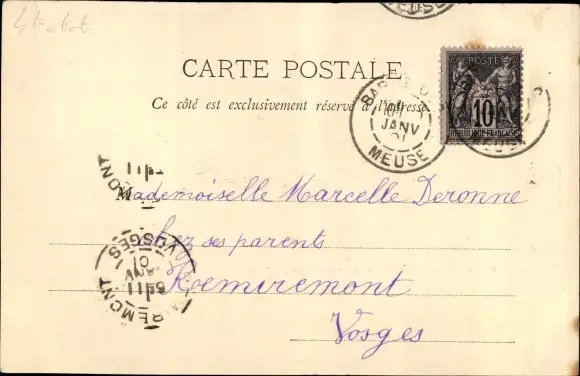 CARTE POSTALE
Ce côté est exclusivement réservé à l'adresse.
POSTE
10
REPUBLIQUE FRANCAISE
BAR
JANV
MEUSE
MEUSE
Mademoiselle Marcelle Deronne
chez ses parents
Remiremont
Vosges
REMIREMONT
JANV
01
VOSGES
MONT